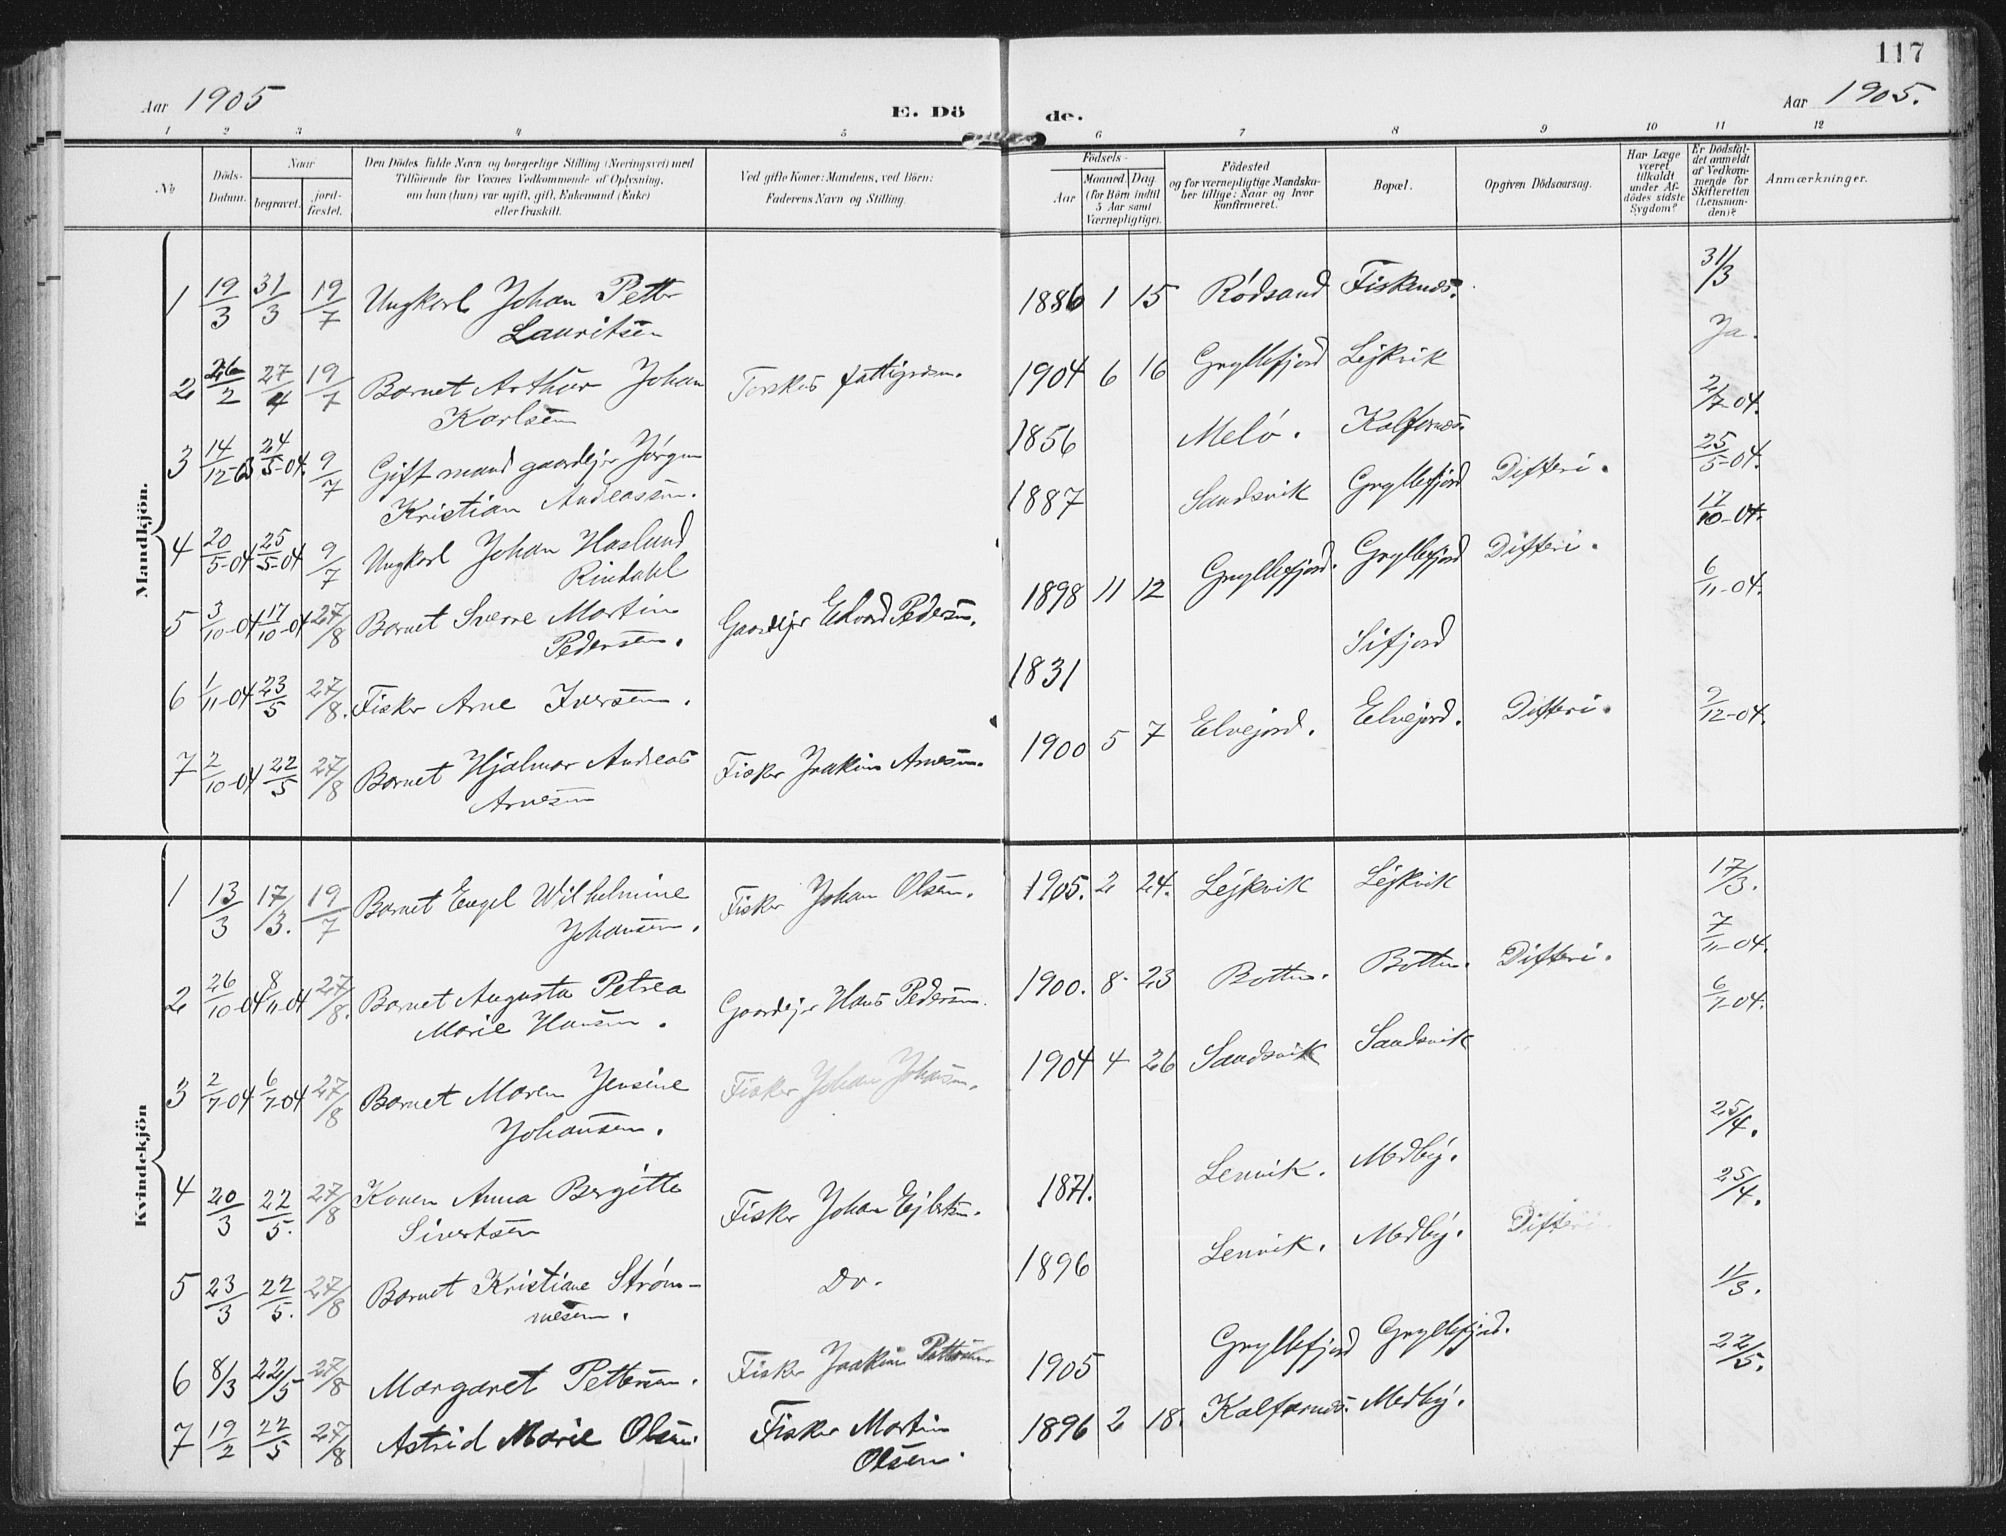 117
Aar 1905
E. Dö
de.
Aar 1905.
1 2 3 4 5 6 7 8 9 10 11 12
No
Döds-Datum.
Naar
begravet.
jord-fæstet.
Den Dödes fulde Navn og borgerlige Stilling (Næringsvei) med
Tilföiende for Voxnes Vedkommende af Oplysning,
om han (hun) var ugift, gift, Enkemand (Enke)
eller fraskilt.
Ved gifte Koner: Mandens, ved Börn:
Faderens Navn og Stilling.
Födsels-
Aar
Maaned. Dag
(for Börn indtil
5 Aar samt
Værnepligtige).
Födested
og for værnepligtige Mandska-
ber tillige: Naar og hvor
konfirmeret.
Bopæl.
Opgiven Dödsaarsag.
Har Læge
været
tilkaldt
under Af-
dödes sidste
Sygdom?
Er Dödsfal-
det anmeldt
af Vedkom-
mende for
Skifteretten
(Lensman-
den)?
Anmærkninger.
Mandkjön.
1 19/3 31/3 19/7 Ungkarl Johan Petter 1886 1 15 Rödsand Fiskenes. 31/3
Lauritsen
Ja.
2 26/2 27/4 19/7 Barnet Arthur Johan Torskes fattigvæsn. 1904 6 16 Gryllefjord Lejkvik
Karlsen
3 14/12- 24/5-04. 9/7 Gift mand gaardejer Jørgen 1856 Melö. Kalfarnes. 2/7-04.
Kristian Andreassen.
4 20/5-04 25/5-04 9/7 Ungkarl Johan Haslund 1887 Sandsvik Gryllefjord Difteri. 25/5-04.
Rindahl
5 3/10-04 17/10-04 27/8 Barnet Sverre Martin Gaardejer Edvard Pedersen. 1898 11 12 Gryllefjord. Gryllefjord Difteri. 17/10-04.
Pedersen.
6 1/11-04 23/5 27/8. Fisker Arne Iversen. 1831 Sifjord 6/11-04.
7 2/10-04 22/5 27/8 Barnet Hjalmar Andreas Fisker Joakim Arnesen. 1900 5 7 Elvejord. Elvejord. Difteri. 2/12-04.
Arnesen
Kvindekjön
1 13/3 17/3. 19/7 Barnet Engel Wilhelmine Fisker Johan Olsen. 1905. 2 24. Lejkvik Lejkvik 17/3.
Johansen.
2 26/10-04 8/11-04 27/8. Barnet Augusta Petrea Gaardejer Hans Pedersen. 1900. 8. 23 Botten. Botten. Difteri. 7/11-04.
Marie Hansen.
3 2/7-04 6/7-04 27/8 Barnet Maren Jensine Fisker Johan Johansen. 1904 4 26 Sandsvik Sandsvik 6/7-04.
Johansen.
4 20/3 22/5. 27/8 Konen Anna Bergitte Fisker Johan Ejlertsen. 1871. Lenvik. Medby. 25/4.
Sivertsen
5 23/3 22/5. 27/8 Barnet Kristiane Strøm- Do. 1896 Lenvik. Medby. Difteri 25/4.
mesen.
6 8/3 22/5 27/8 Margaret Pettersen. Fisker Joakim Pettersen 1905 Gryllefjord Gryllefjord. 11/3.
7 19/2 22/5 27/8 Astrid Marie Olsen. Fisker Martin 1896 2 18. Kalfarnes. Medby. 22/5.
Olsen.